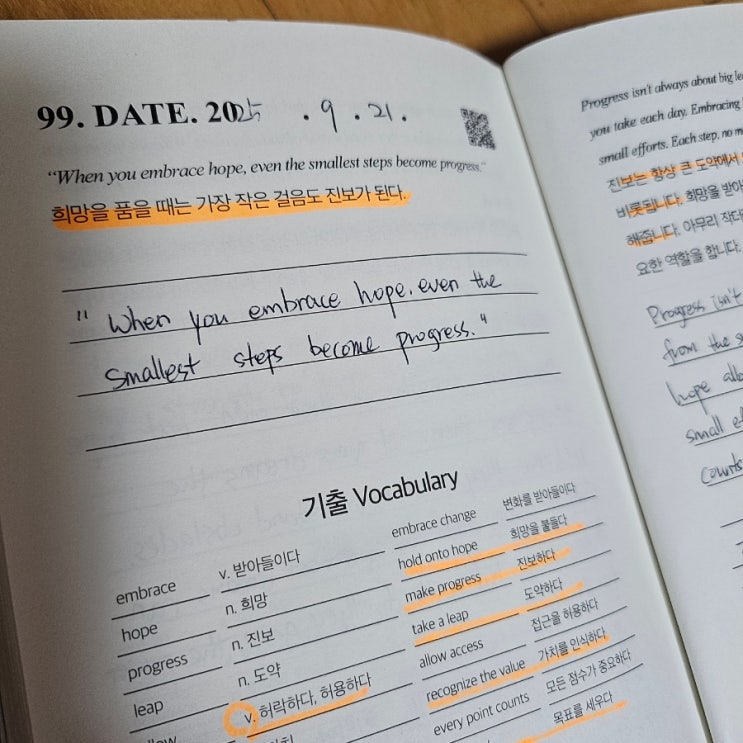 99. DATE. 2025 . 9 . 21.
"When you embrace hope, even the smallest steps become progress."
희망을 품을 때는 가장 작은 걸음도 진보가 된다.
" When you embrace hope, even the
smallest steps become progress."
기출 Vocabulary
embrace v. 받아들이다 embrace change 변화를 받아들이다
hope n. 희망 hold onto hope 희망을 붙들다
progress n. 진보 make progress 진보하다
leap n. 도약 take a leap 도약하다
v. 허락하다, 허용하다 allow access 접근을 허용하다
recognize the value 가치를 인식하다
every point counts 모든 점수가 중요하다
목표를 세우다
Progress isn't always about big
you take each day. Embracing
small efforts. Each step, no
진보는 항상 큰 도약에서
비롯됩니다. 희망을
해줍니다. 아무리
요한 역할을 합니다.
Progress isn't
from the
hope
small
counts